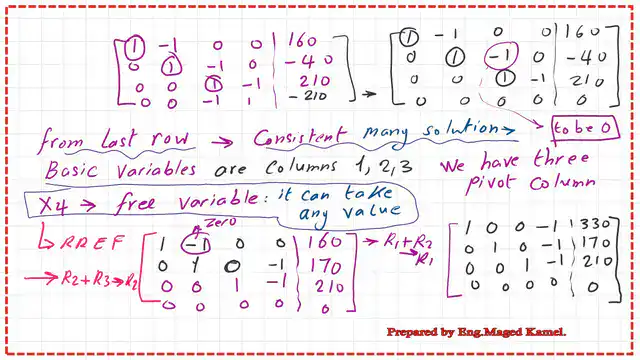 1 -1 0 0 | 160    1 -1 0 0 | 160
0 1 -1 0 | -40    0 1 -1 0 | -40
0 0 1 -1 | 210    0 0 1 -1 | 210
0 0 -1 1 | -210 → 0 0 0 0 | 0
to be 0
from Last row → Consistent many solution →
Basic variables are Columns 1, 2, 3
We have three
pivot column
X4 → free variable: it can take
any value
zero
RREF
→ R2+R3→R2
1 -1 0 0 | 160
0 1 0 -1 | 170
0 0 1 -1 | 210
0 0 0 0 | 0
→ R1+R2
→R1
1 0 0 -1 | 330
0 1 0 -1 | 170
0 0 1 -1 | 210
0 0 0 0 | 0
Prepared by Eng.Maged Kamel.